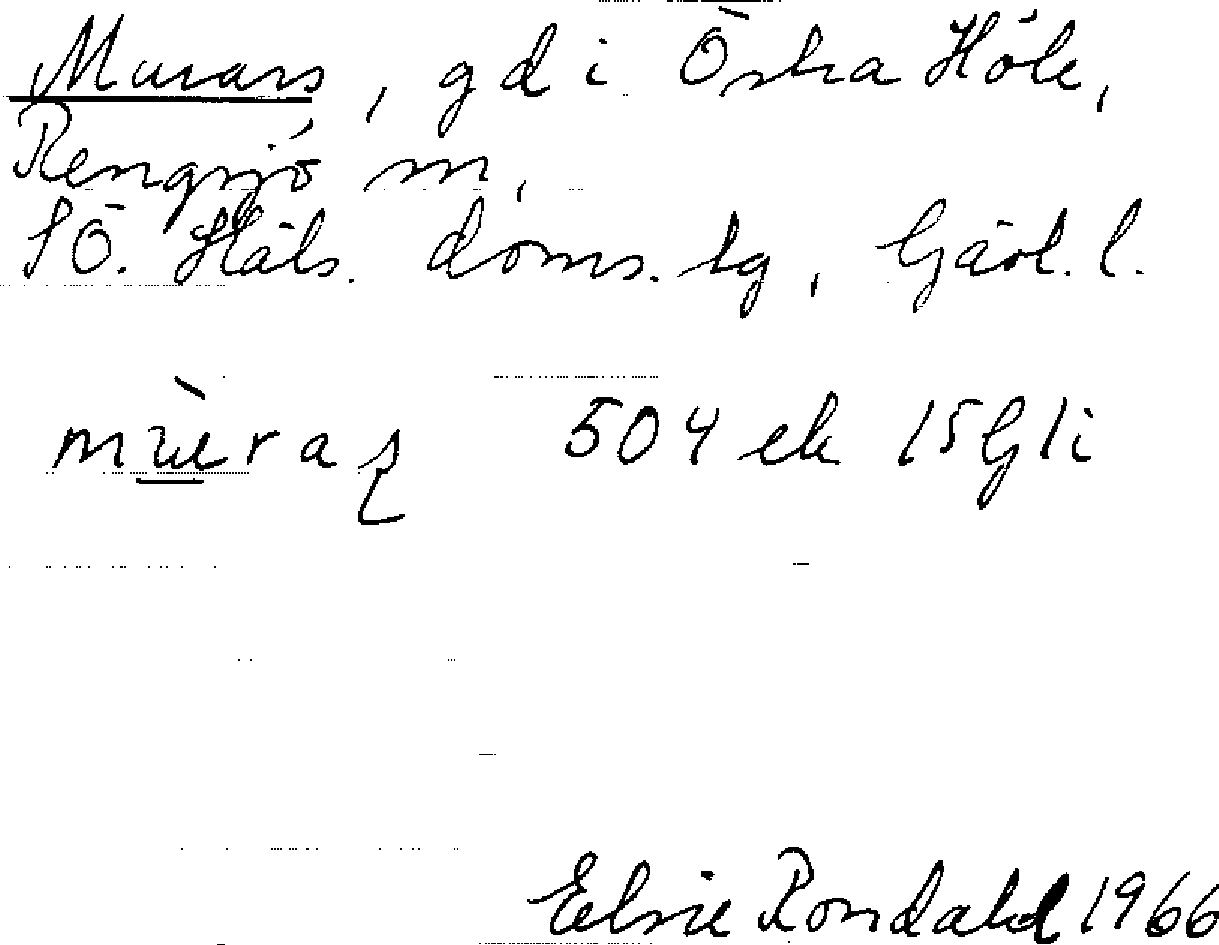 Murars, gd i Östra Höle,
Rengsjö sn,
SÖ. Häls. doms. tg, Gävl. l.
504 ek 15G1i
Elsie Rondahl 1966